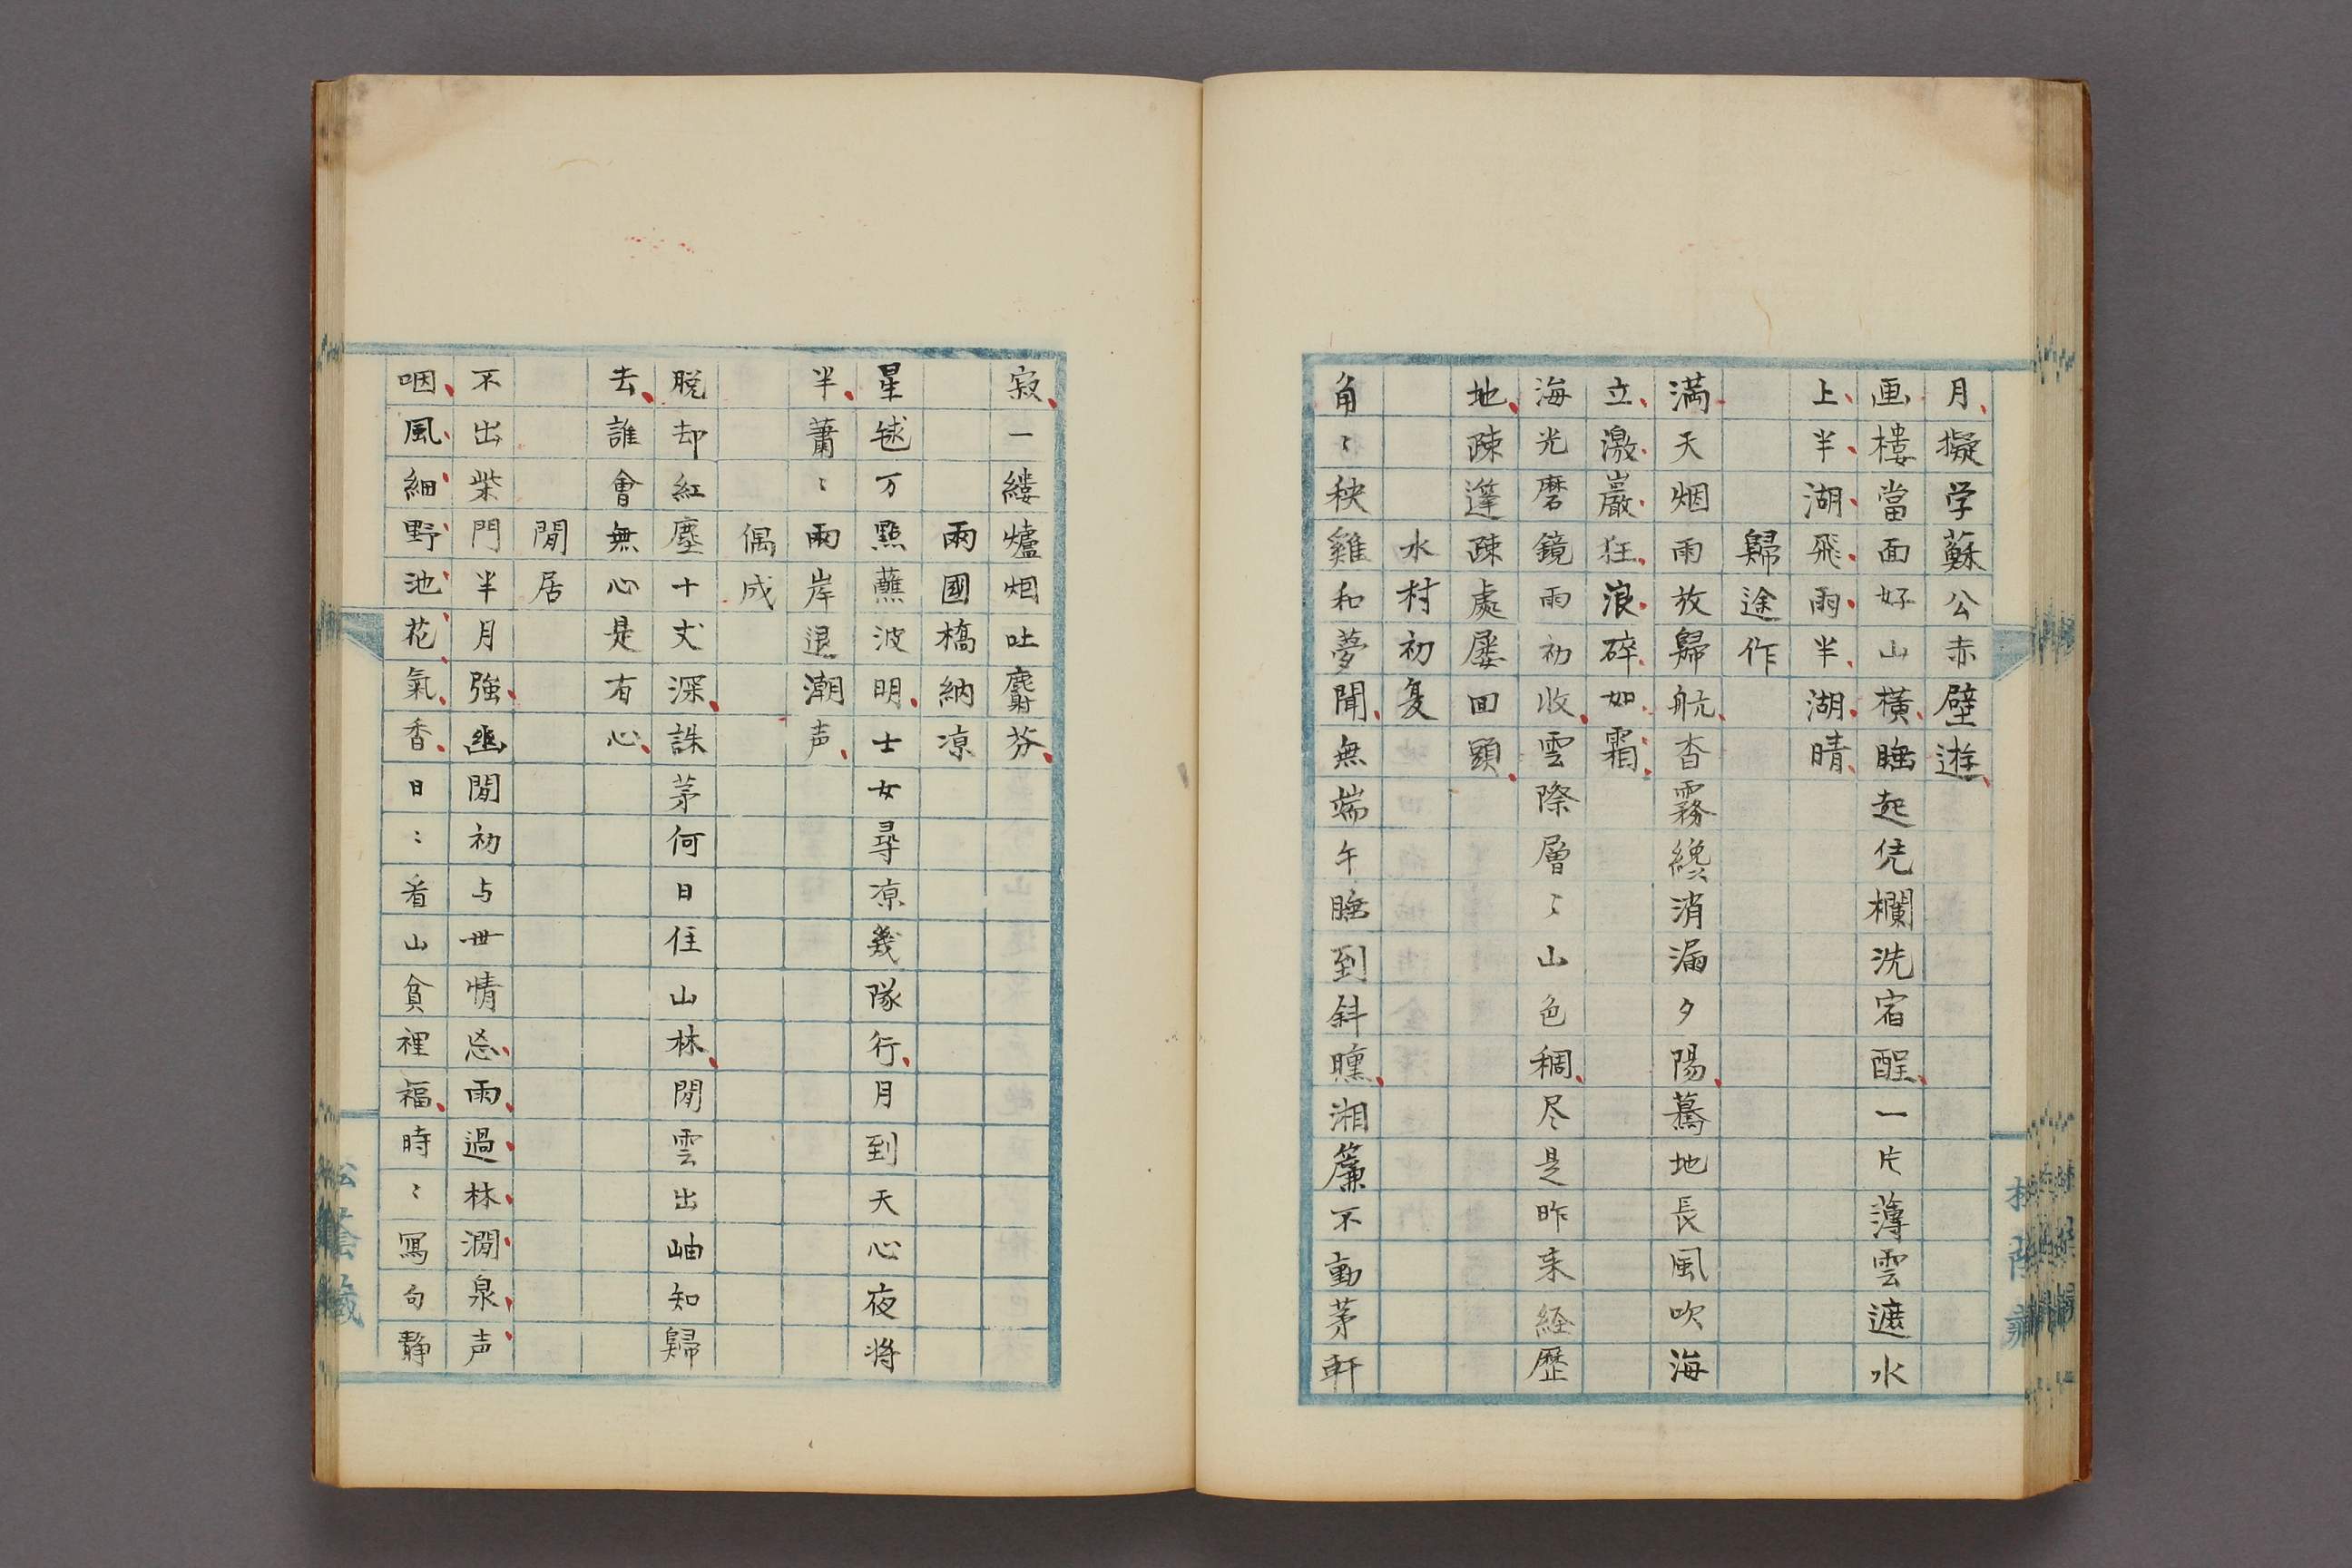 月擬学蘇公赤壁遊
画樓當面好山横睡起凭欄洗宿酲一片薄雲遮水
上半湖飛雨半湖晴
歸途作
満天烟雨放歸航杳霧纔消漏夕陽驀地長風吹海
立激巖狂浪碎如霜
海光磨鏡雨初收雲際層〻山色稠尽是昨来経歴
地疎篷疎處屡回頭
水村初夏
角〻秧雞和夢聞無端午睡到斜曛湘簾不動茅軒
寂一縷爐烟吐麝芬
兩國橋納凉
星毬万點蘸波明士女尋凉幾隊行月到天心夜将
半蕭〻兩岸退潮声
偶成
脱却紅塵十丈深誅茅何日住山林閒雲出岫知歸
去誰會無心是有心
閒居
不出柴門半月強幽閒初与世情忘雨過林澗泉声
咽風細野池花氣香日〻看山貧裡福時〻寫句靜
松蔭藏